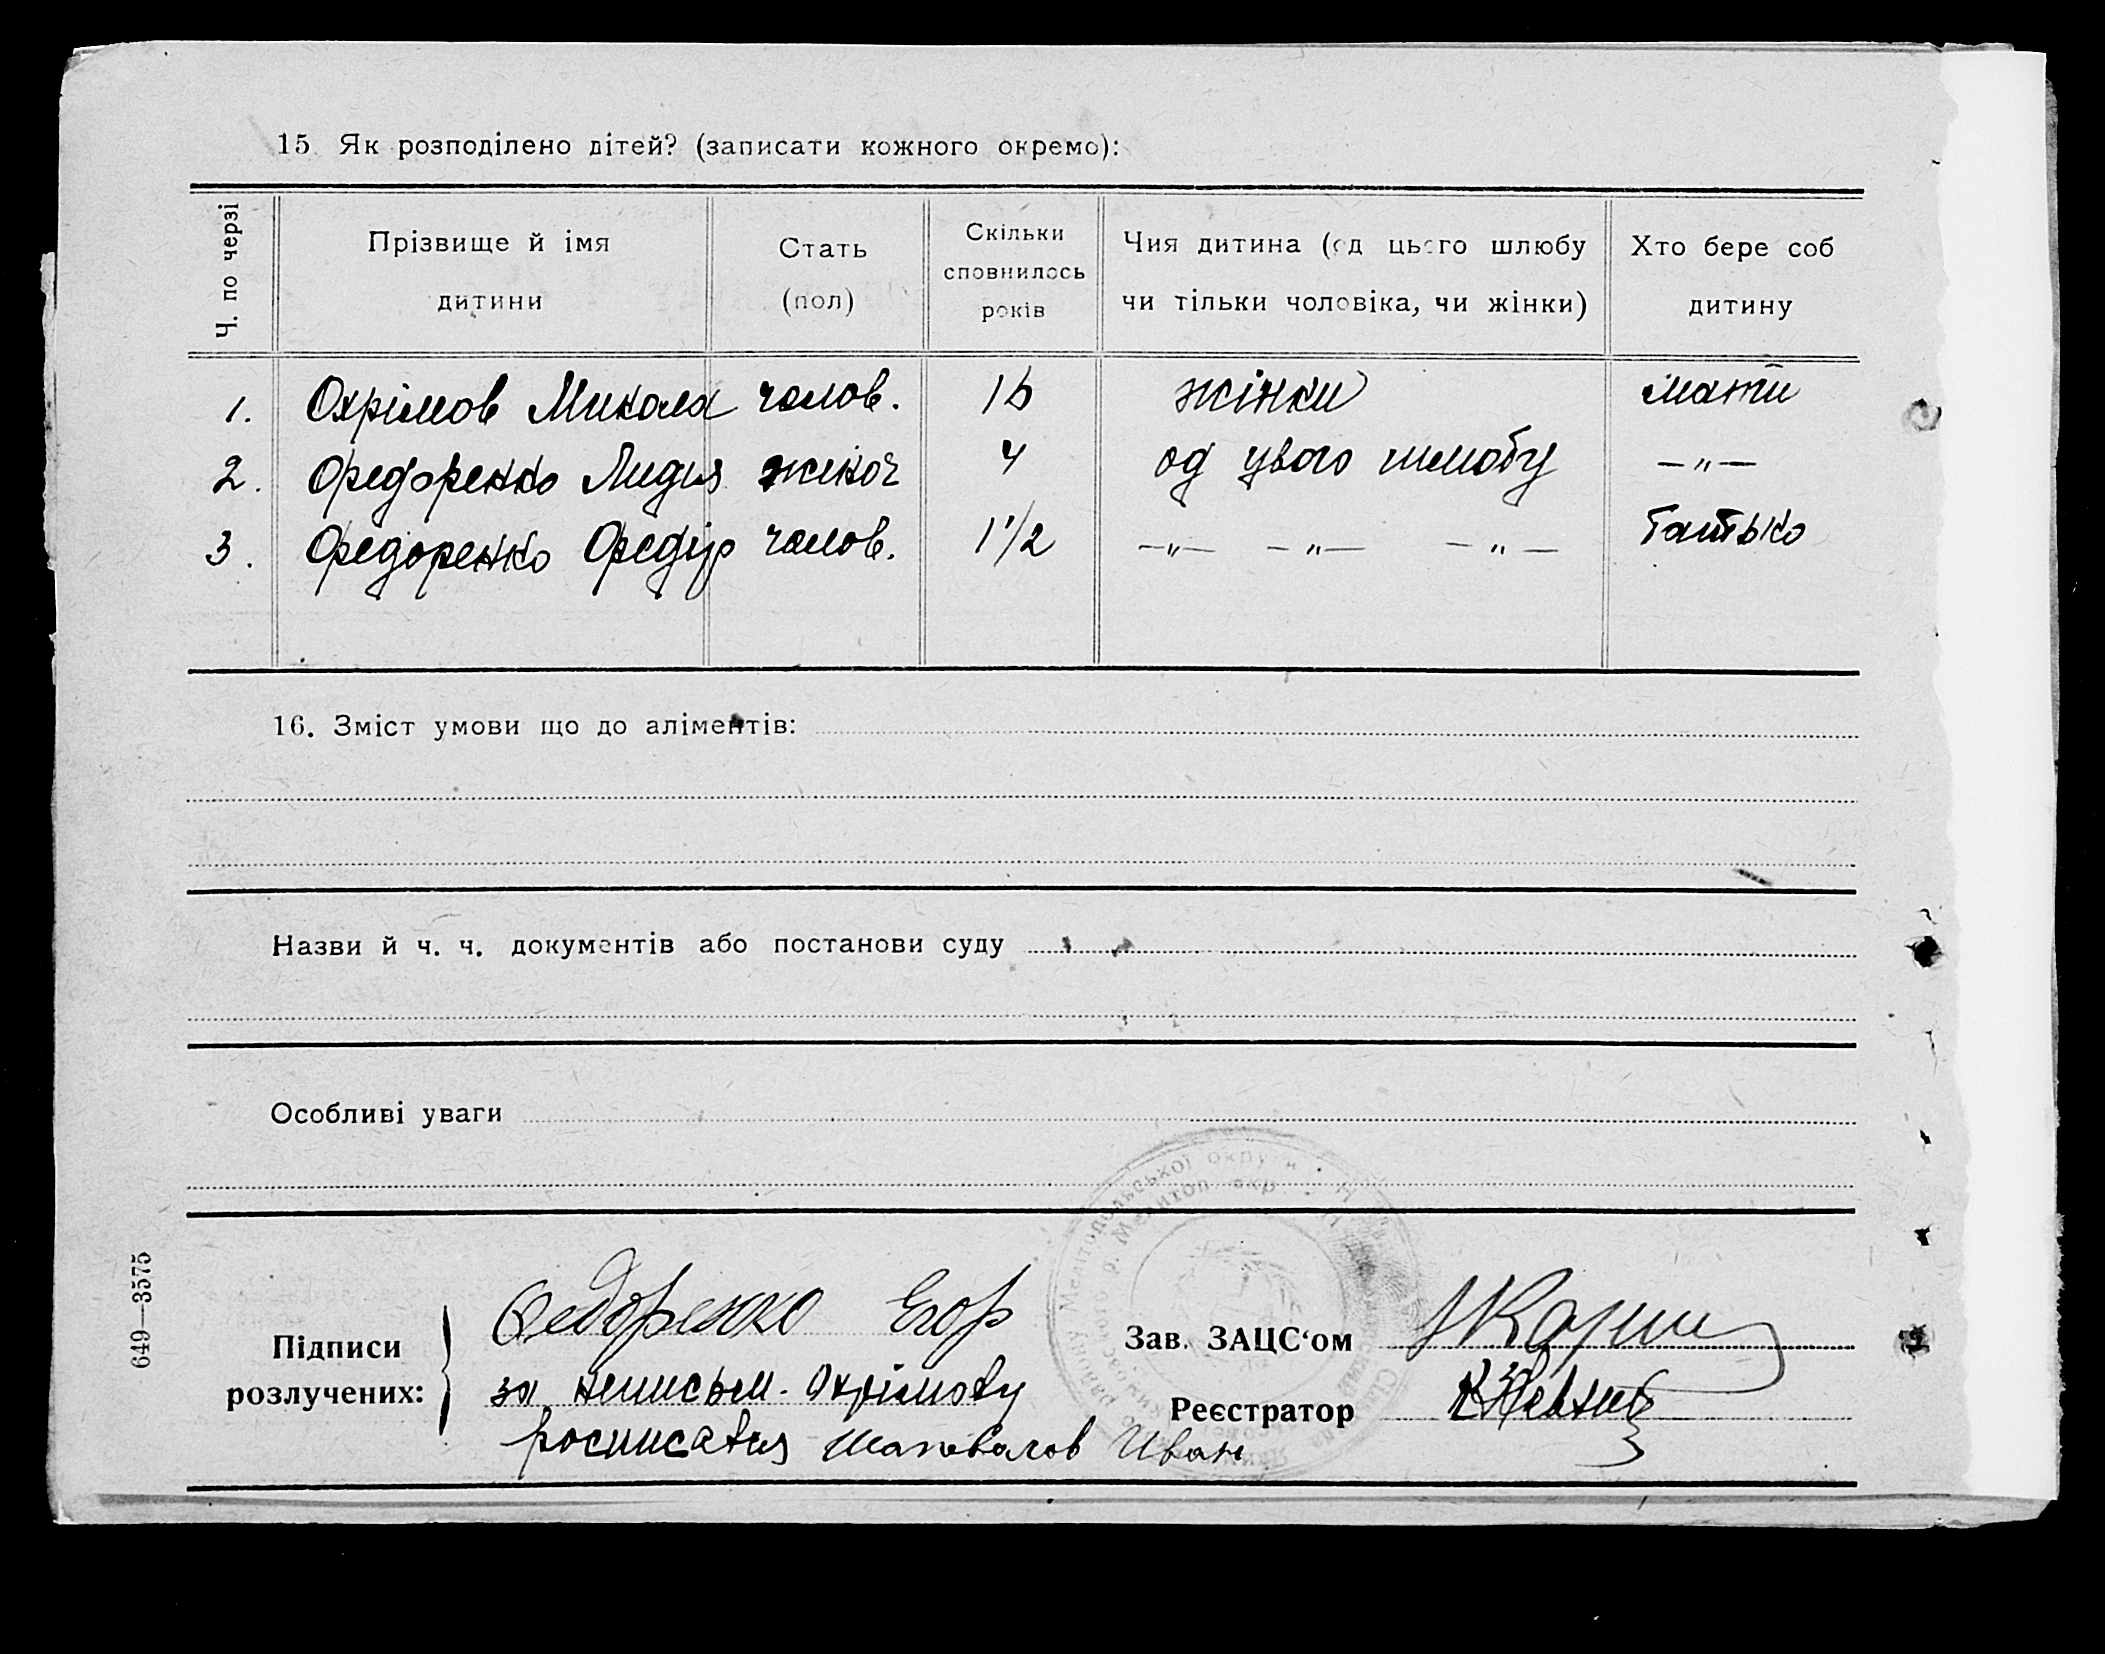 15 Як розподілено дітей? (записати кожного окремо):
Ч. по черзі
Прізвище й імя дитини
Стать (пол)
Скільки сповнилось років
Чия дитина (од цього шлюбу чи тільки чоловіка, чи жінки)
Хто бере соб дитину
1. Охрімов Микола чолов. жінки мати
2. Федоренко Лидия жіноч 4 од цвого шлюбу —„—
3. Федоренко Федір чолов. 1 1/2 —„— —„— —„— батько
16. Зміст умови що до аліментів:
Назви й ч. ч. документів або постанови суду
Особливі уваги
649—3575
Підписи розлучених:
Федоренко Егор
за неписьм. Охрімову
росписався Шаповалов Иван
Зав. ЗАЦС‘ом
Реєстратор
Мелітопольської округи
р. Мелитоп. окр.